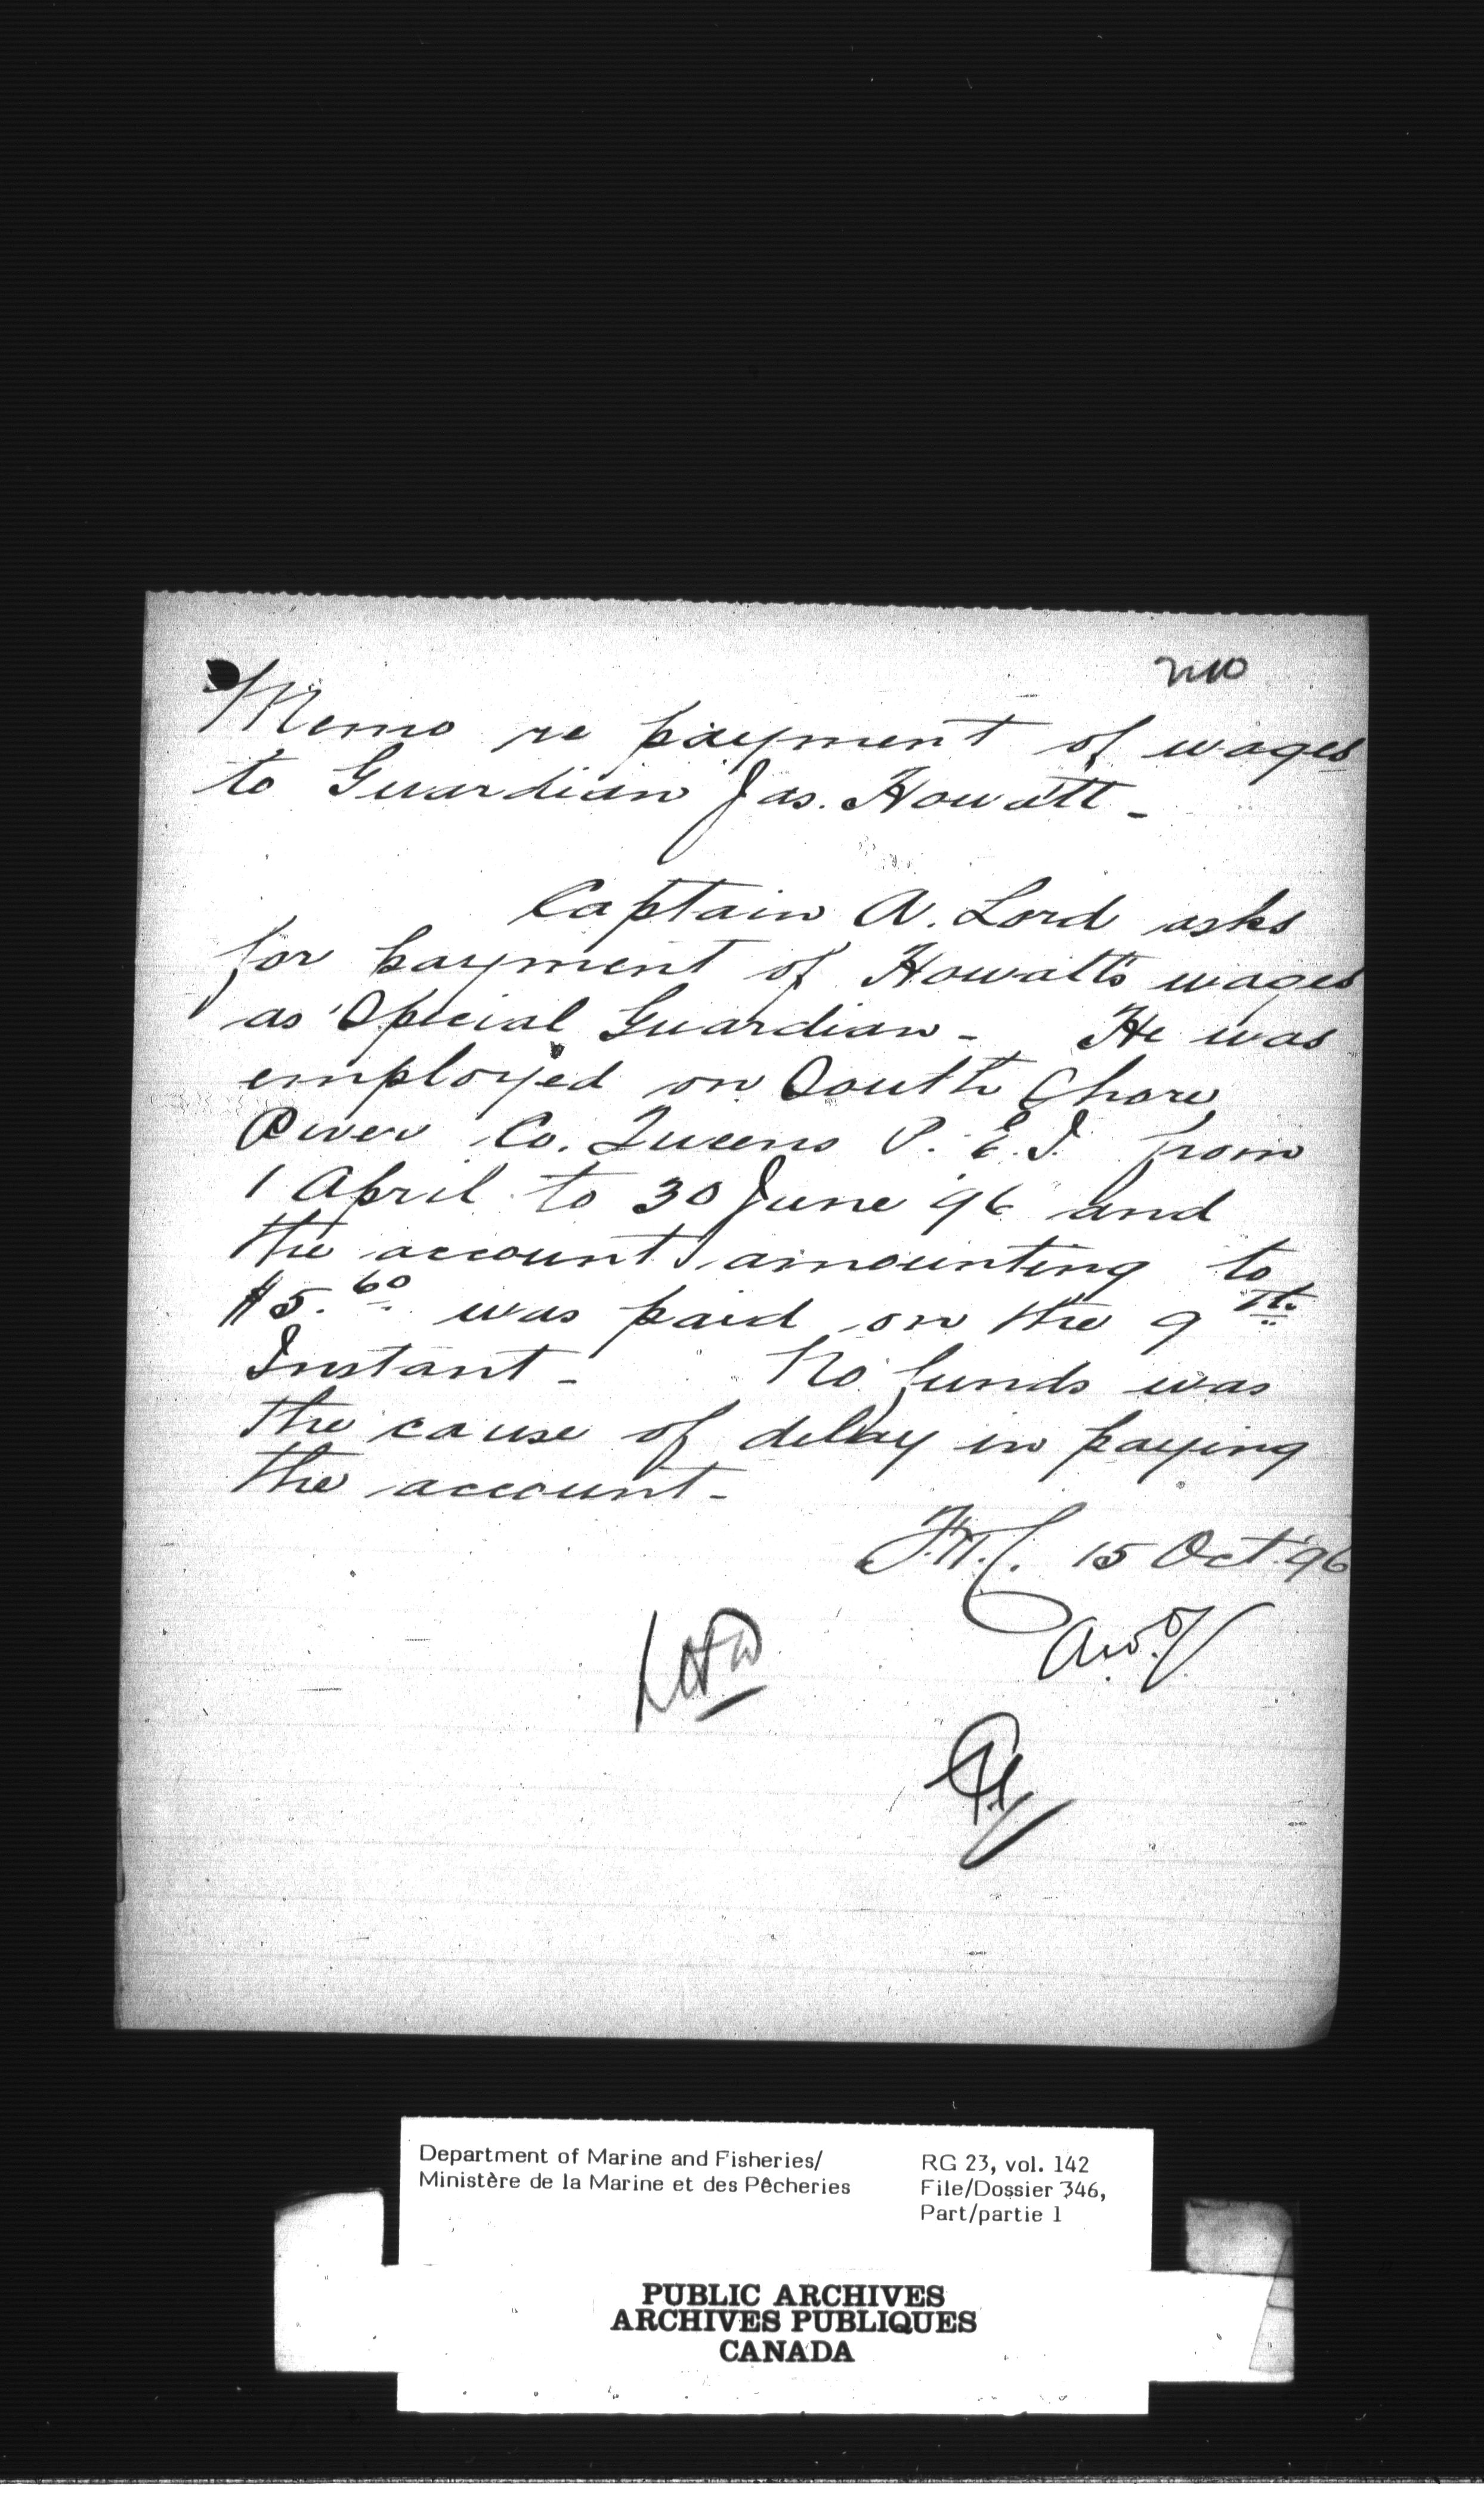 210
Memo re payment of wages
to Guardian Jas. Howatt -
Captain A. Lord asks
for payment of Howatt's wages
as Special Guardian - He was
employed on South Shore
River Co. Queens P. E. I. from
1 April to 30 June '96 and
the account amounting to
$5.60 was paid on the 9th
Instant - No funds was
the cause of delay in paying
the account -
15 Oct '96
Department of Marine and Fisheries/
Ministère de la Marine et des Pêcheries
RG 23, vol. 142
File/Dossier 346,
Part/partie 1
PUBLIC ARCHIVES
ARCHIVES PUBLIQUES
CANADA